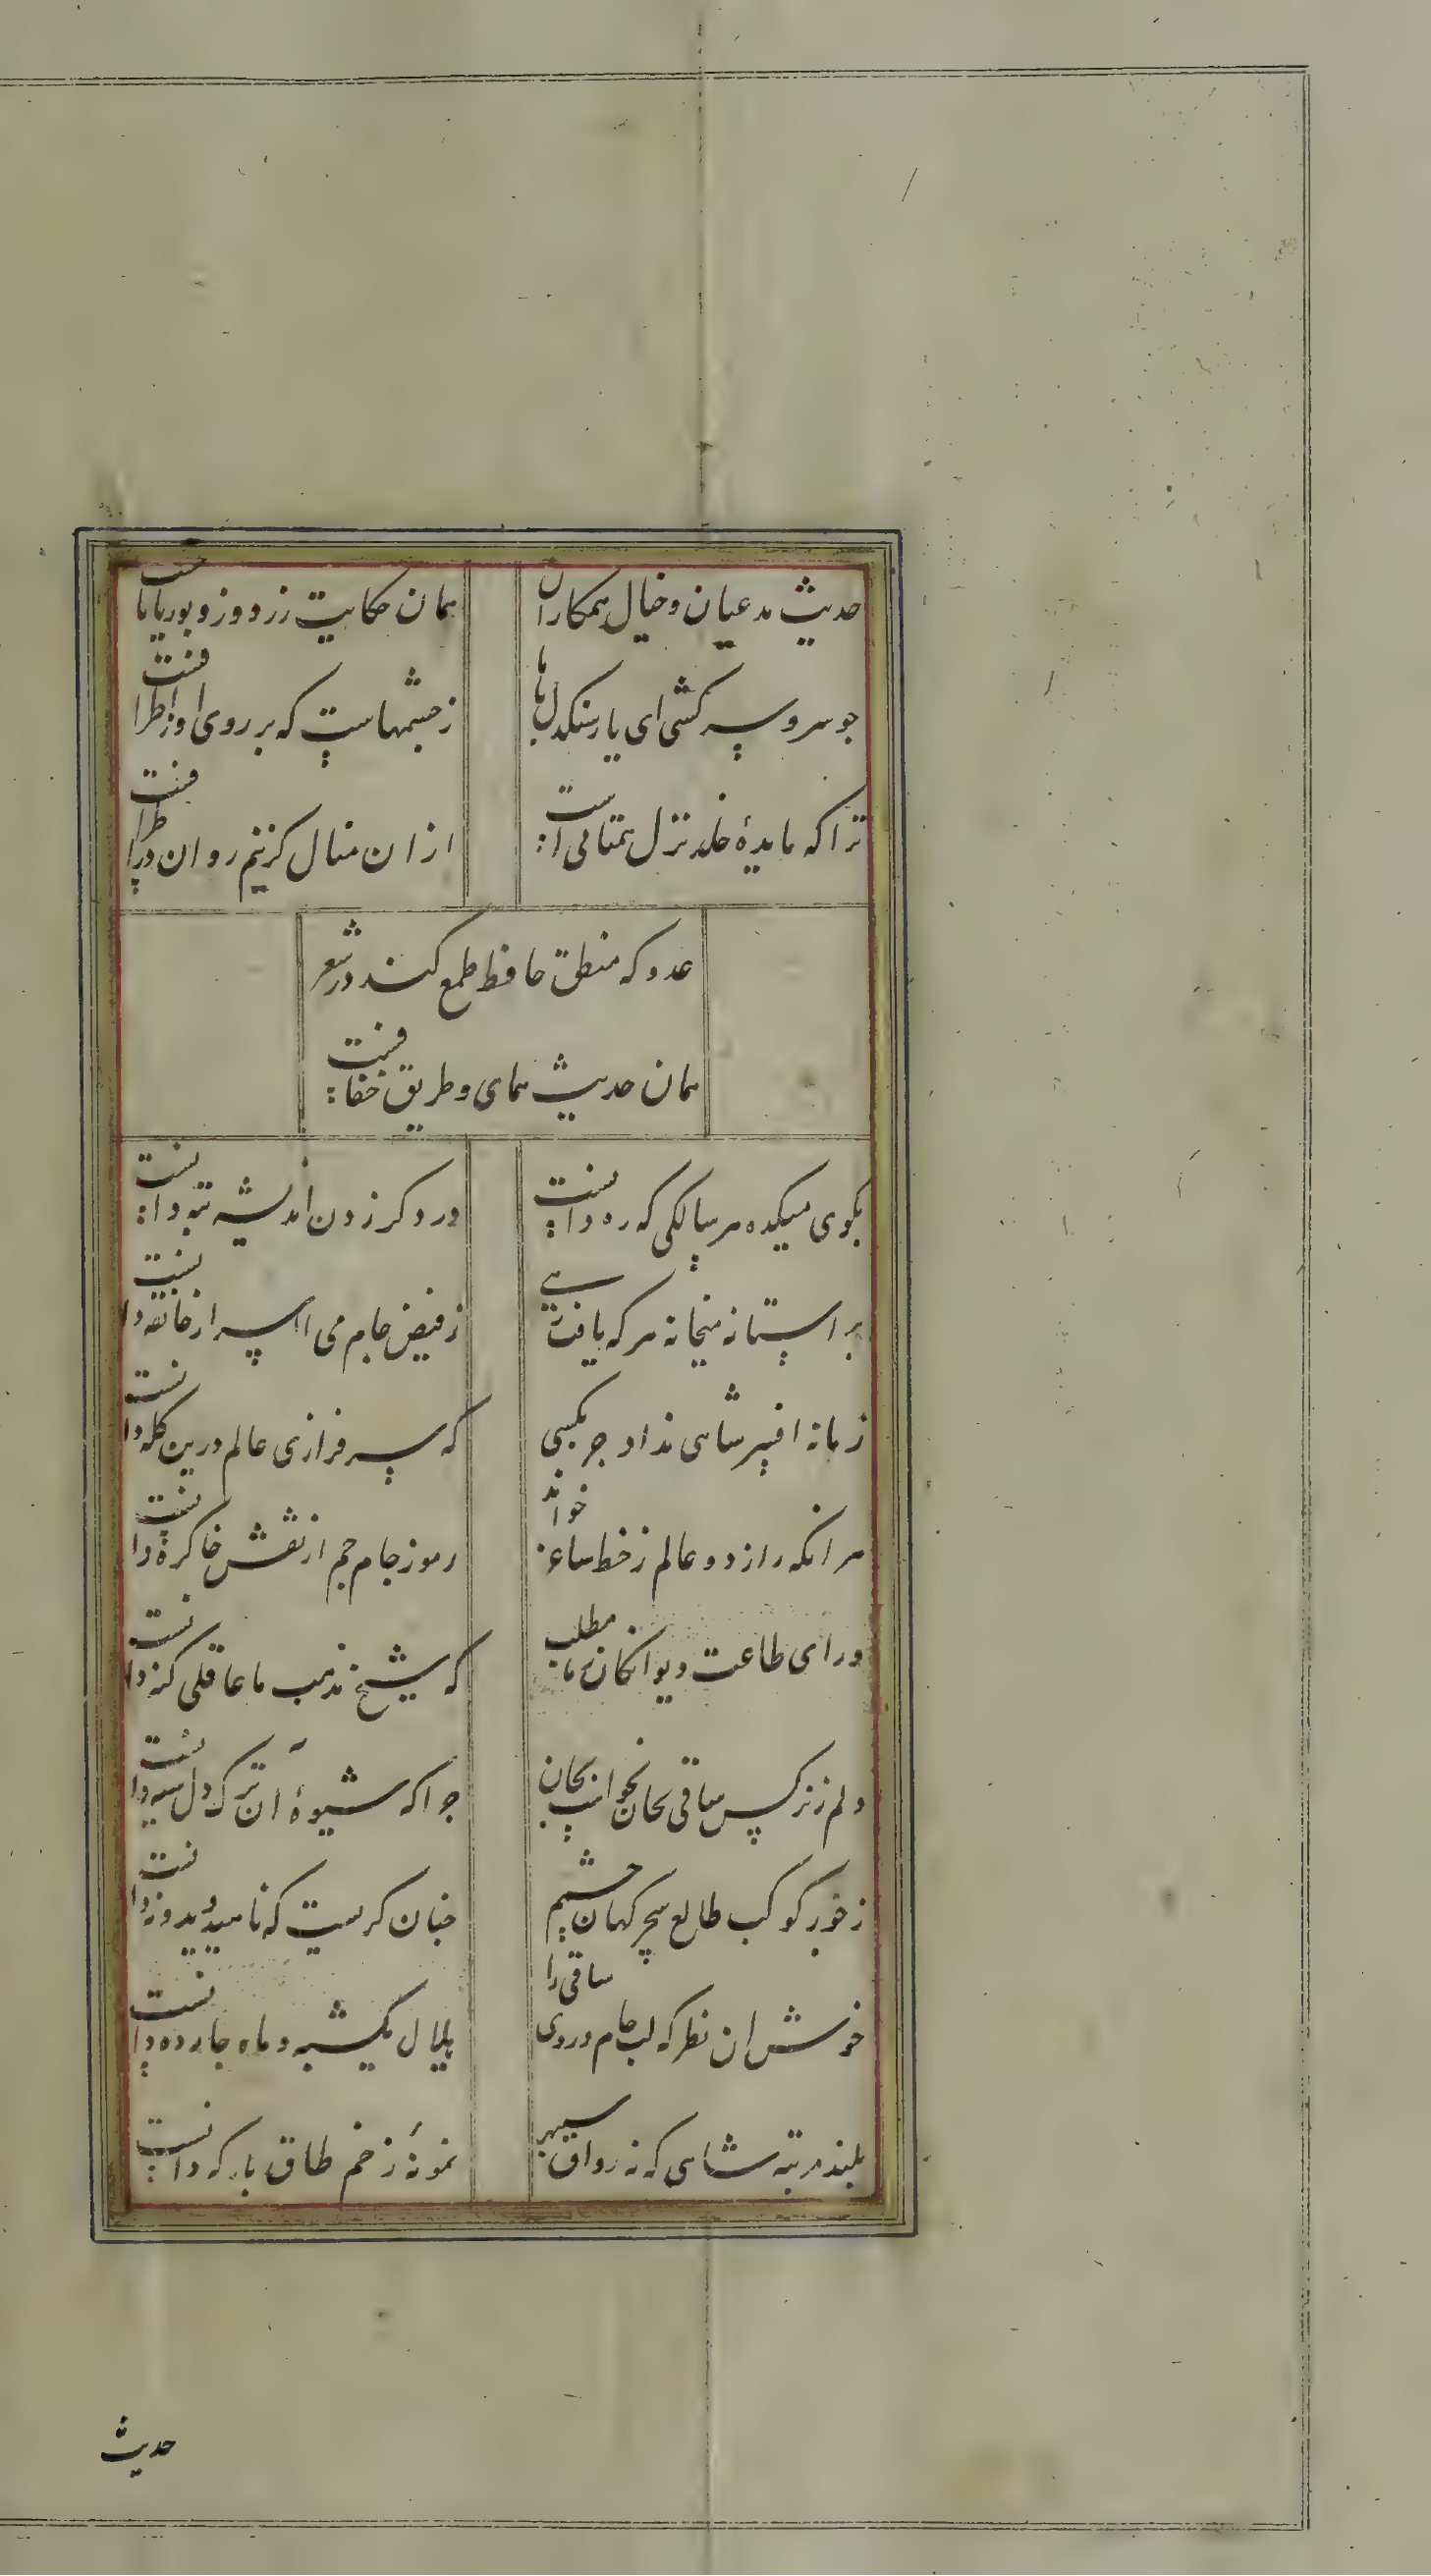 حدیث مدعیان و خیال همکاران
همان حکایت زردوز و بوریابافست
جو سرو سرکشی ای یار سنکدل باما
ز چشمهاست که بر روی او ز اطرافست
ترا که مایدهٔ خلد نزل همتا می است
از ان منال کزنیم روان در اطرافست
عدو که منطق حافظ طمع کند در شعر
همان حدیث همای و طریق خفافست
بکوی میکده هر سالکی که ره دانست
در دکر زدن اندیشه تبه دانست
بر استانه میخانه هر که یافت رهی
ز فیض جام می اسرار خانقه دانست
زمانه افسر شاهی نداد جز بکسی
که سرفرازی عالم درین کله دانست
هر انکه راز دو عالم ز خط ساغر خواند
رموز جام جم از نقش خاک ره دانست
ورای طاعت دیوانکان ز ما مطلب
که شیخ مذهب ما عاقلی کنه دانست
دلم ز نرکس ساقی امان نخواست بجان
جرا که شیوهٔ آن ترک دل سیه دانست
ز جور کوکب طالع سحرکهان چشمم
جنان کریست که ناهید دید و مه دانست
خوش ان نظر که لب جام و روی ساقی را
هلال یکشبه و ماه جارده دانست
بلند مرتبه شاهی که نه رواق سپهر
نمونهٔ ز خم طاق بارکه دانست
حدیث